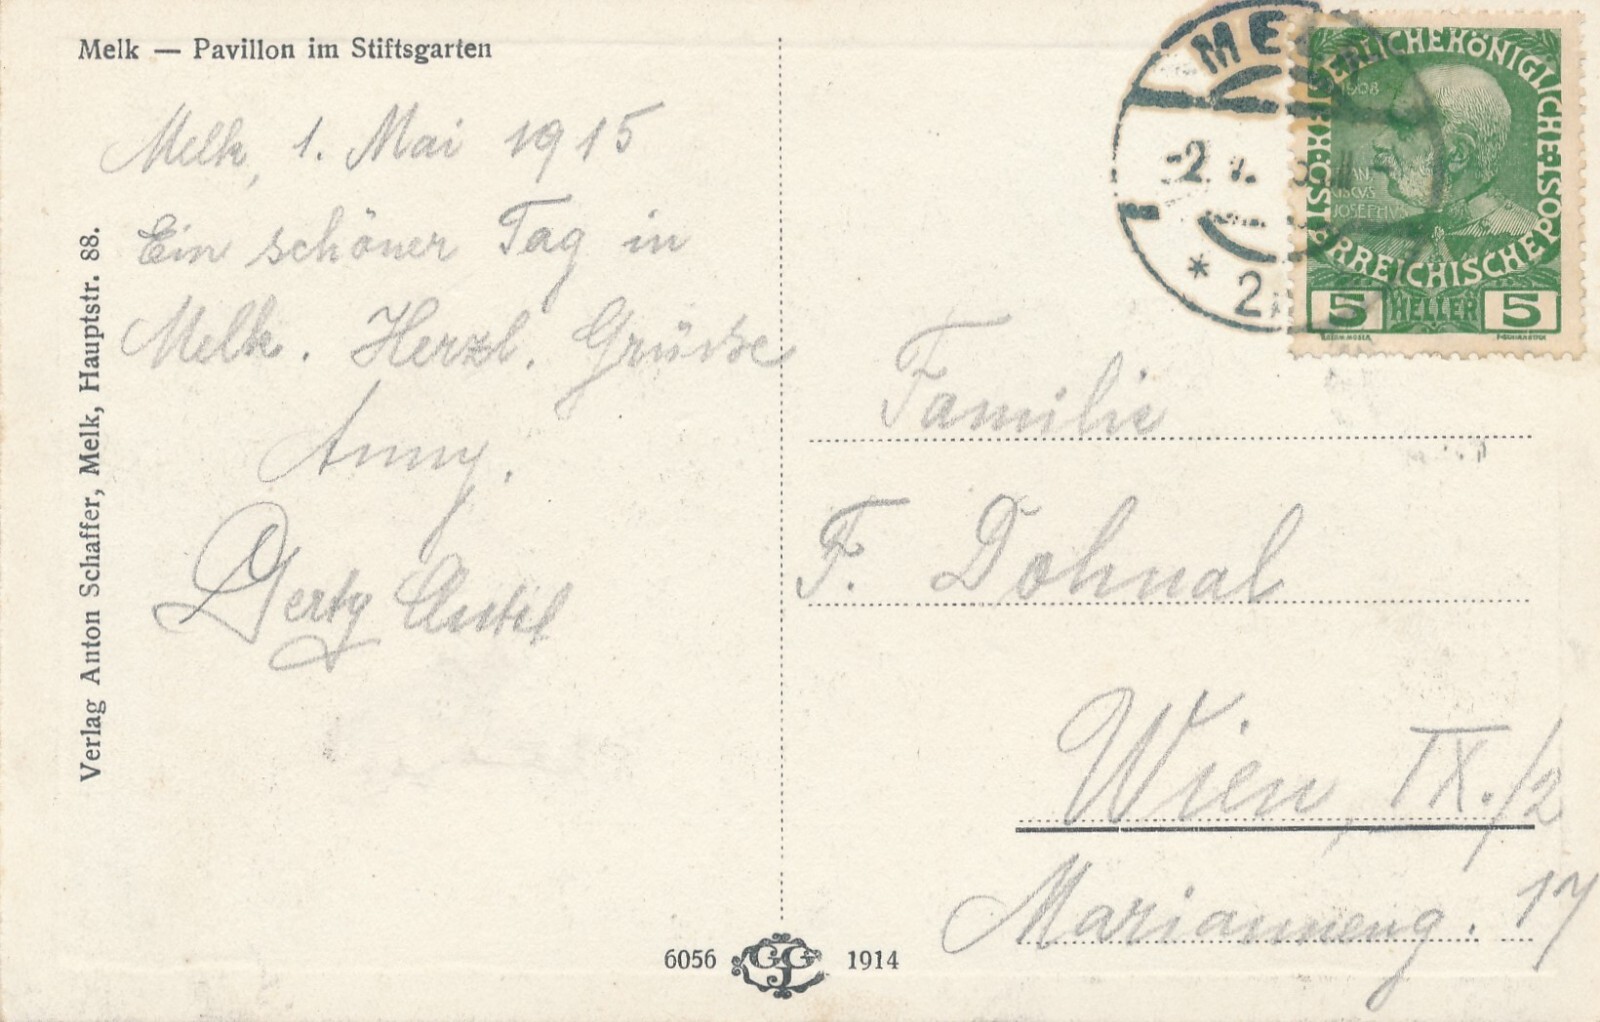 Melk — Pavillon im Stiftsgarten
Melk, 1. Mai 1915
Ein schöner Tag in
Melk. Herzl. Grüsse
Anny.
Gerty
Verlag Anton Schaffer, Melk, Hauptstr. 88.
ME
-2.
* 2
KAISERLICHEKÖNIGLICHE·ÖSTERREICHISCHEPOST
1908
JOSEPHUS
5 HELLER 5
Familie
F. Dohnal
Wien, IX./2
Marianneng. 17
6056 1914